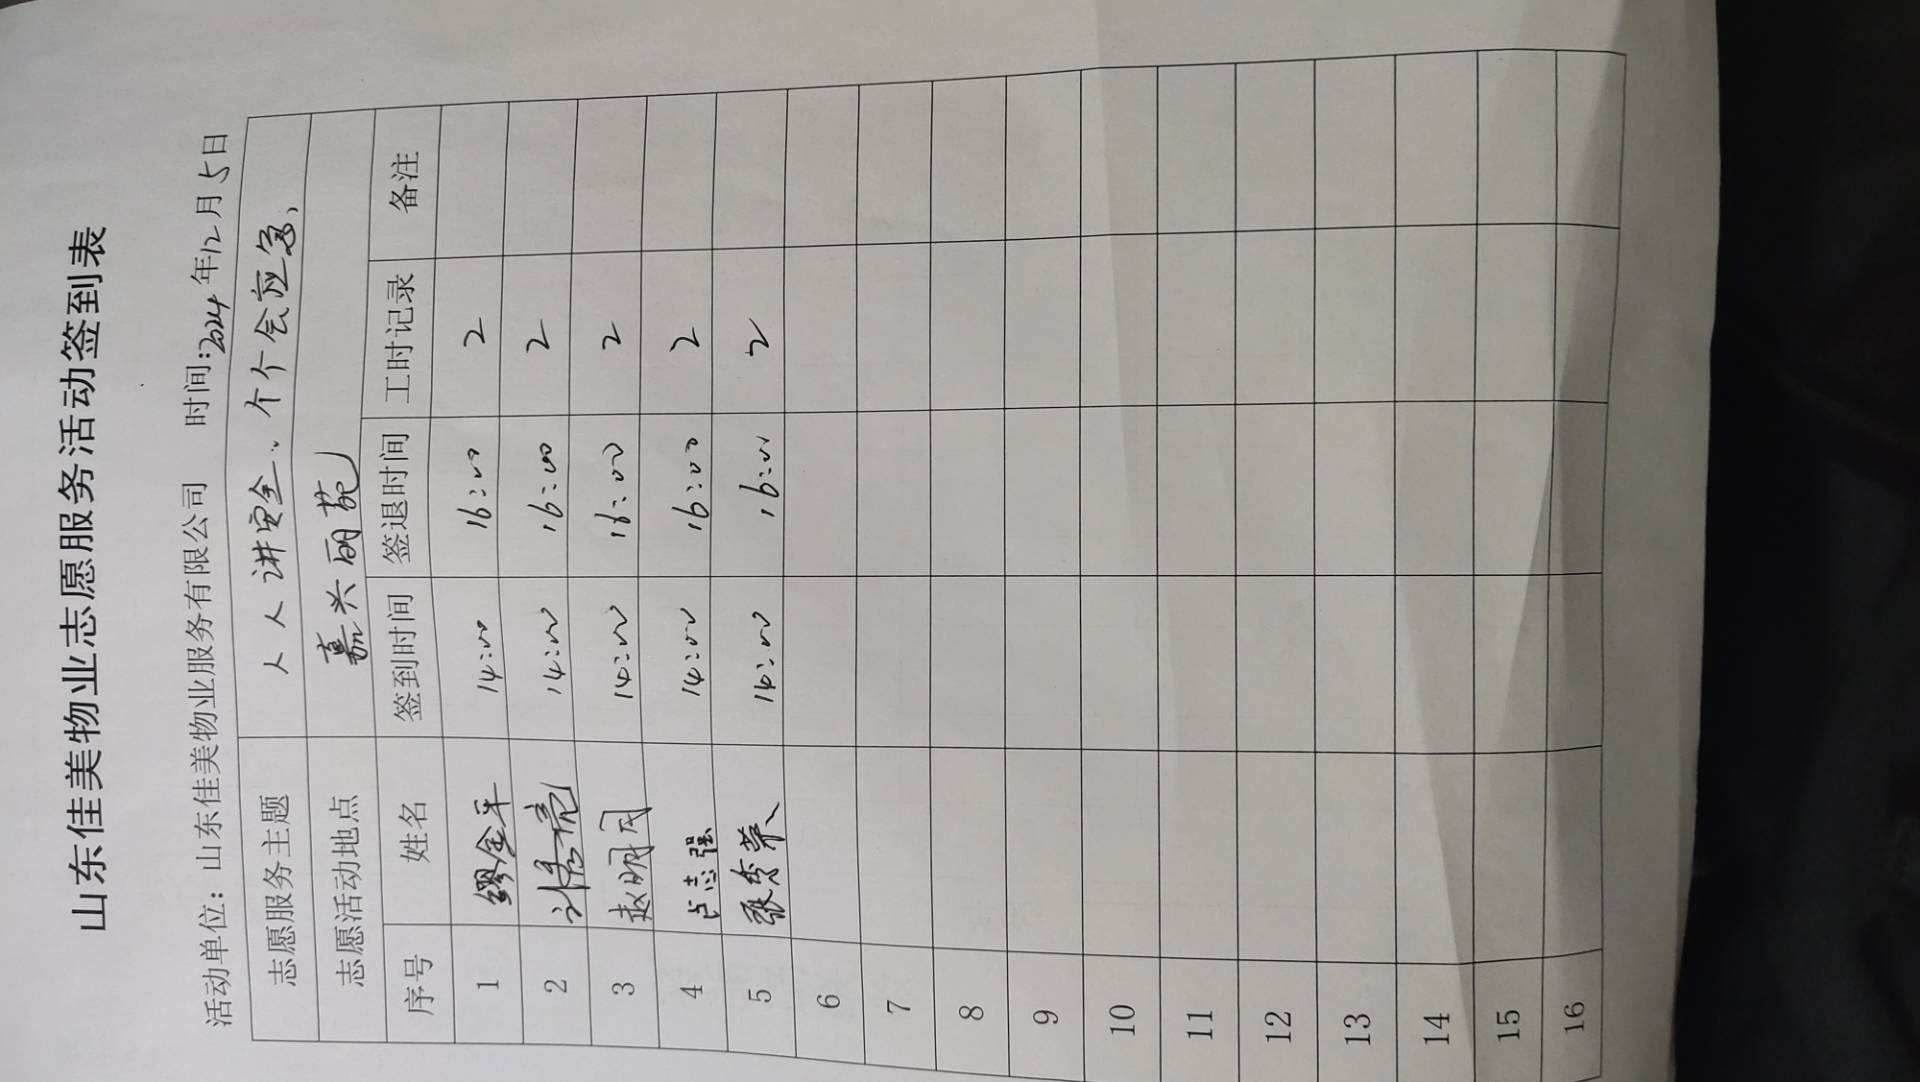 山东佳美物业志愿服务活动签到表
活动单位：山东佳美物业服务有限公司 时间:2024年12月5日
志愿服务主题 人人讲安全、个个会应急、
志愿活动地点 嘉兴丽苑
序号 姓名 签到时间 签退时间 工时记录 备注
1 缪金平 14:00 16:00 2
2 14:00 16:00 2
3 赵明月 14:00 16:00 2
4 占志强 14:00 16:00 2
5 张秀荣 14:00 16:00 2
6
7
8
9
10
11
12
13
14
15
16